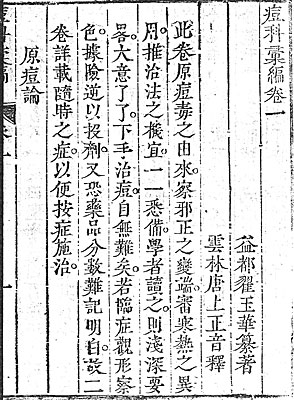 痘科彙編卷一
益都翟玉華纂著
雲林唐上正音釋
此卷原痘毒之由來察邪正之變端審寒熱之異
用推治法之機宜一一悉備學者讀之則淺深要
畧大意了了下手治痘自無難矣若臨症觀形察
色據險逆以投劑又恐藥品分數難記明白故二
卷詳載隨時之症以便按症施治
原痘論